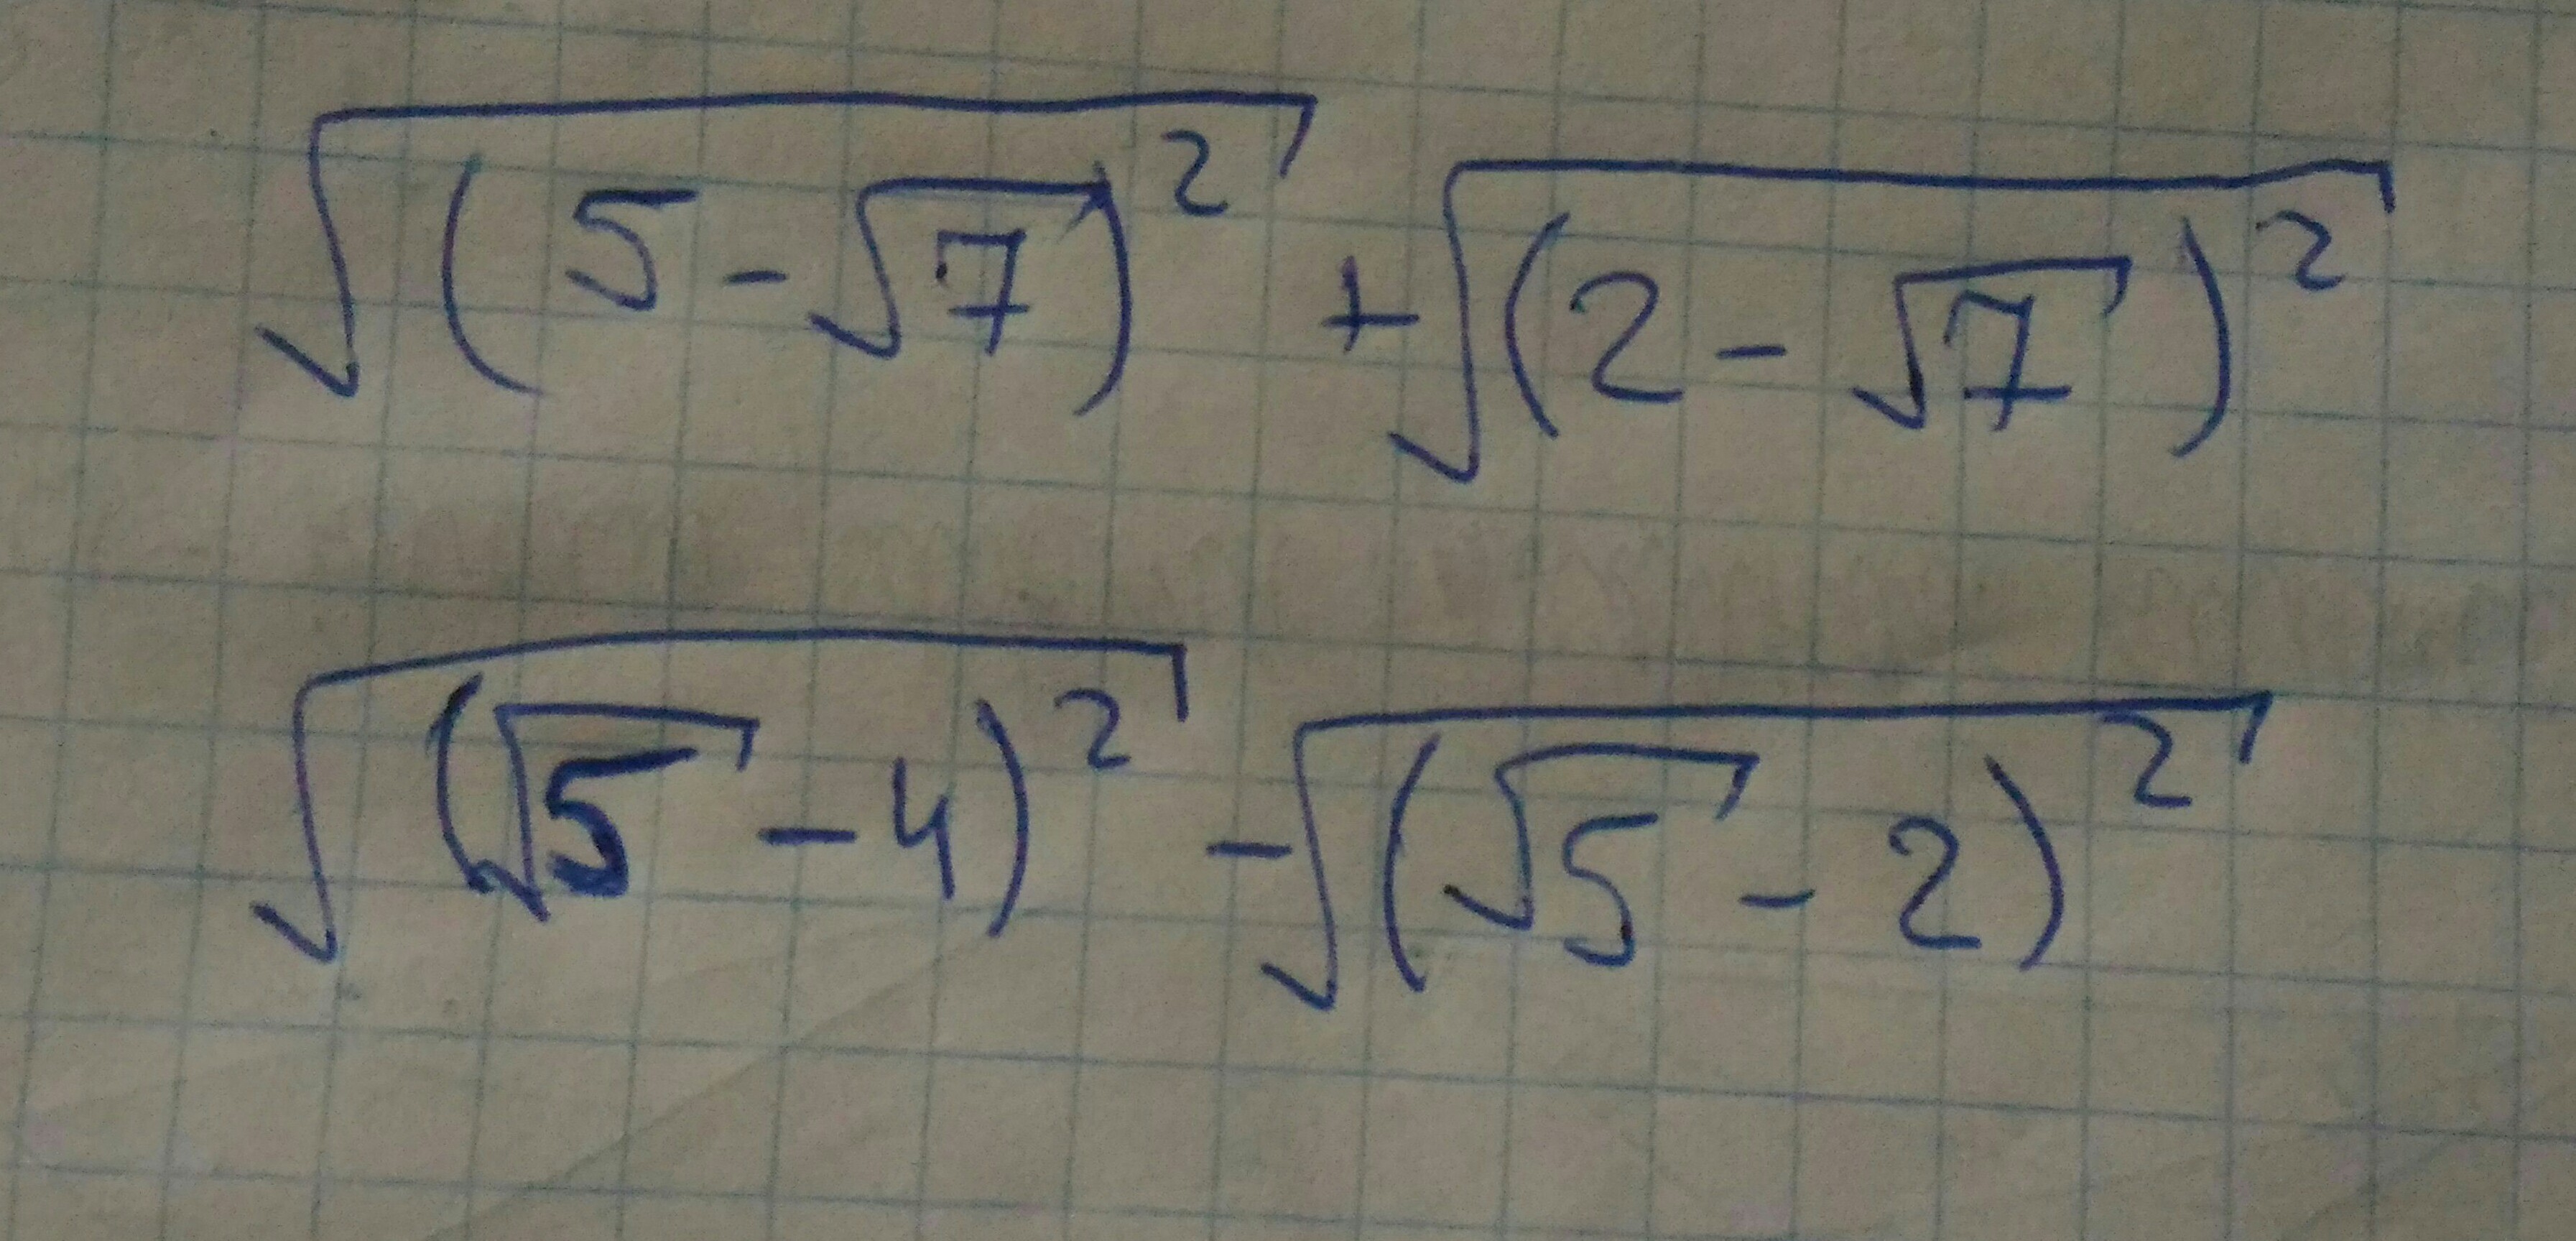 √(5-√7)² + √(2-√7)²
√(√5-4)² - √(√5-2)²